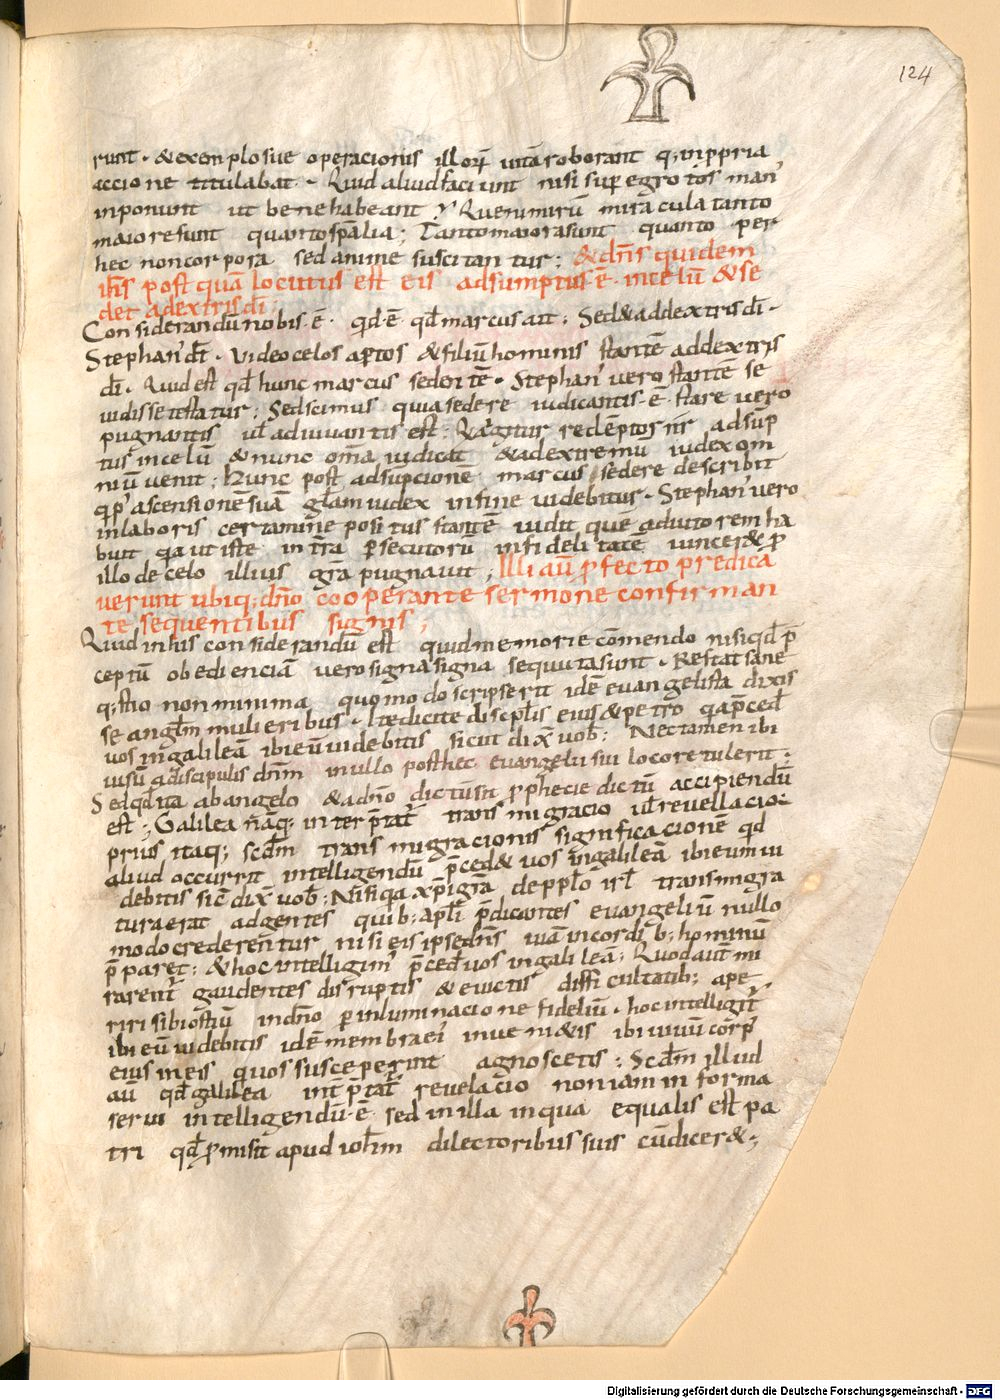 124
runt · & exemplo sue operacionis illorū uitā roborant q; in ppria
accione titulabat · Quid aliud faciunt nisi sup egrotos man'
inponunt ut bene habeant ? Que nimirū miracula tanto
maiore sunt quanto spalia ; Tanto maiora sunt quanto per
hec non corpora sed anime suscitantur ; & dn̄s quidem
ih̄s post quā locutus est eis adsumptus · ē · in celū & se
det a dextris dī
Considerandū nobis · ē · qd · ē qđ marcus ait : Sed& ad dextris dī ·
Stephan' dt̄ · Video celos aptos & filiū hominis stantē ad dextris
dī · Quid est qđ hunc marcus sedentē · Stephan' vero stante se
uidisse testatur ; Sed scimus quia sedere iudicantis · ē · stare vero
pugnantis ul̄ adiuuantis est : Quia igitur redēptor nr̄ adsūp
tus in celū & nunc om̄a iudicat & ad extremū iudex om
niū uenit ; Hunc post adsupcionē marcus sedere describit
qp' ascensionē suā glam iudex in fine uidebitur · Stephan' vero
in laboris certamine positus stantē uidit quē adiutorem ha
buit qa ut iste in tra psecutorū infidelitatē uincer& p
illo de celo illius gra pugnauit ; Illi aū pfecto predica
verunt ubiq; dn̄o cooperante sermone confirman
te sequentibus signis ;
Quid in his considerandū est quid memorie cōmendo nisi qđ p̄
ceptū obedienciā vero signa signa sequuta sunt · Restat sane
q;stio non minima quomodo scripserit idē euangelista dixis
se anglm mulieribus · Ite dicite discplis eius & petro qa p̄ced&
uos in galileā ibi eū uidebitis sicut dix̄ uob ; Nec tamen ibi
uisū a discipulis dnm̄ in ullo post hec euangelii sui loco retulerit ;
Sed qđ ita ab angelo & a dn̄o dictū sit pphecie dictū accipiendū
est ; Galilea nāq; interp̄tat transmigracio ul̄ revellacio ·
prius itaq; scdm transmigracionis significacionē qd
aliud occurrit intelligendū p̄ced& uos in galileā ibi eum ui
debitis sic̄ dix̄ uob ; Nisi qa xp̄i gra de pplo isrl transmigra
tura erat ad gentes quib; apli p̄dicantes euangeliū nullo
modo crederentur nisi eis ipse dn̄s uiā in cordib; hominū
p̄pararet ; & hoc intelligim' p̄ced& uos in galileā ; Quod aut mi
rarent gaudentes disruptis & euictis difficultatib; ape
riri sibi ostiū in dn̄o p inluminacione fideliū · hoc intelligit
ibi eū uidebitis idē membra ei' inueni&is ibi uiuū corp'
eius in eis quos susceperint agnoscetis : Scdm illud
aū qđ galilea intp̄tat revelacio non iam in forma
serui intelligendū · ē sed in illa in qua equalis est pa
tri qđ pmisit apud ioh̄m dilectoribus suis cū dicer& ;
Digitalisierung gefördert durch die Deutsche Forschungsgemeinschaft - DFG